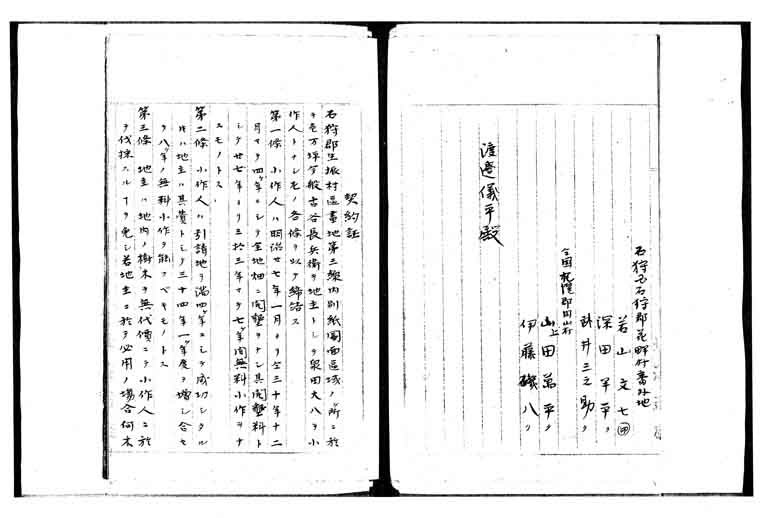 石狩国石狩郡花畔村番外地
若山文七㊞
深田平平〃
酘井三之助〃
仝国札幌郡円山村
上山田萬平〃
伊藤磯八〃
渡邉儀平殿
契約証
石狩郡生振村區畫地第三線内別紙圖面區域ノ所ニ於
テ壱万坪今般古谷長兵衛ヲ地主トシテ泉田大八ヲ小
作人トナシ左ノ各條ヲ以テ締結ス
第一條 小作人ハ明治廿七年一月ヨリ全三十年十二
月マテ四ヶ年ニシテ全地畑ニ開墾ヲナシ其開墾料ト
シテ廿七年ヨリ三拾三年マテ七ヶ年間無料小作ヲナ
スモノトス
第二條 小作人ハ引請地ヲ満四ヶ年ニシテ成功シタル
片ハ地主ハ其賞トシテ三十四年一ヶ年度ヲ増シ合セ
テ八ヶ年ノ無料小作ヲ能フベキモノトス
第三條 地主ハ地内ノ樹木ヲ無代價ニテ小作人ニ於
テ伐採スルヿヲ免シ若地主ニ於テ必用ノ場合何木